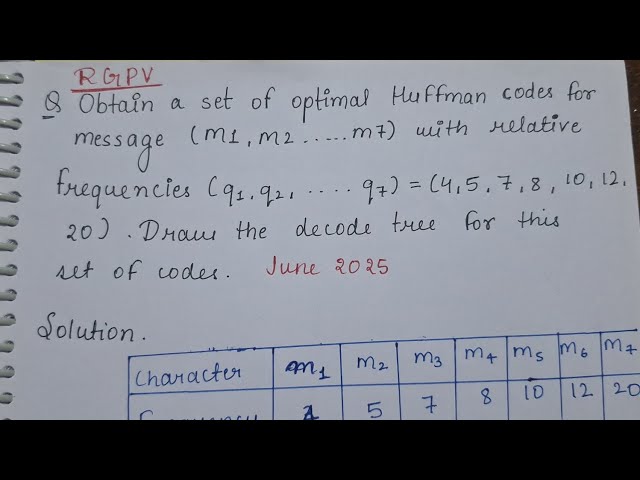 RGPV
Q Obtain a set of optimal Huffman codes for
message (m1, m2 ..... m7) with relative
frequencies (q1, q2, .... q7) = (4, 5, 7, 8, 10, 12,
20). Draw the decode tree for this
set of codes. June 2025
Solution.
Character m1 m2 m3 m4 m5 m6 m7
5 7 8 10 12 20